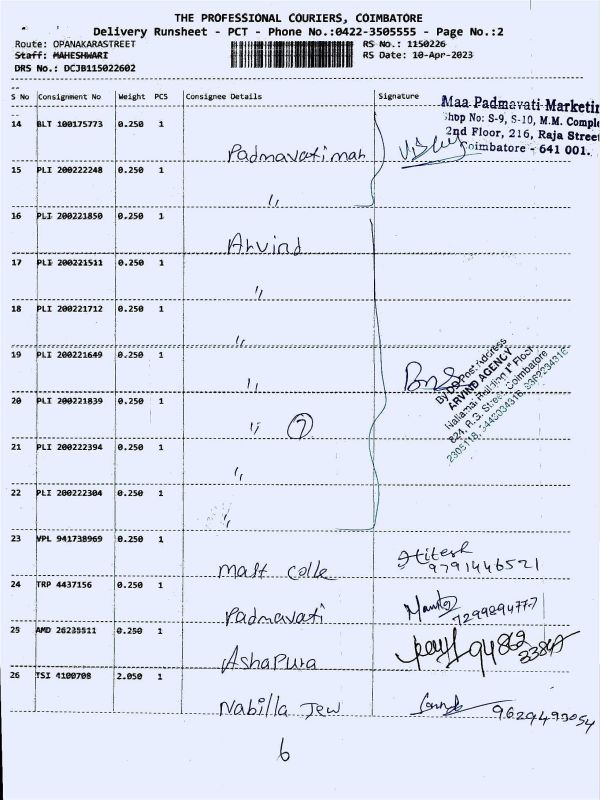 THE PROFESSIONAL COURIERS, COIMBATORE
Delivery Runsheet - PCT - Phone No.:0422-3505555 - Page No.:2
Route: OPANAKARASTREET RS No.: 1150226
Staff: MAHESHWARI RS Date: 10-Apr-2023
DRS No.: DCJB115022602
S No Consignment No Weight PCS Consignee Details Signature
Maa Padmavati Marketin
Shop No: S-9, S-10, M.M. Comple
2nd Floor, 216, Raja Street
Coimbatore - 641 001.
14 BLT 100175773 0.250 1 Padmavati mah
15 PLI 200222248 0.250 1 〃
16 PLI 200221850 0.250 1 Arvind
17 PLI 200221511 0.250 1 〃
18 PLI 200221712 0.250 1 〃
19 PLI 200221649 0.250 1 〃
By DD Post Address
ARVIND AGENCY
Nallamai Building 1st Floor
824, R.G. Street, Coimbatore
20 PLI 200221839 0.250 1 〃 7
21 PLI 200222394 0.250 1 〃
22 PLI 200222304 0.250 1 〃
23 VPL 941738969 0.250 1 Matt Colle Hitesh
9791446521
24 TRP 4437156 0.250 1 Padmavati
7299894777
25 AMD 26235511 0.250 1 Ashapura
26 TSI 4100708 2.050 1 Nabilla Jew
9629493054
6